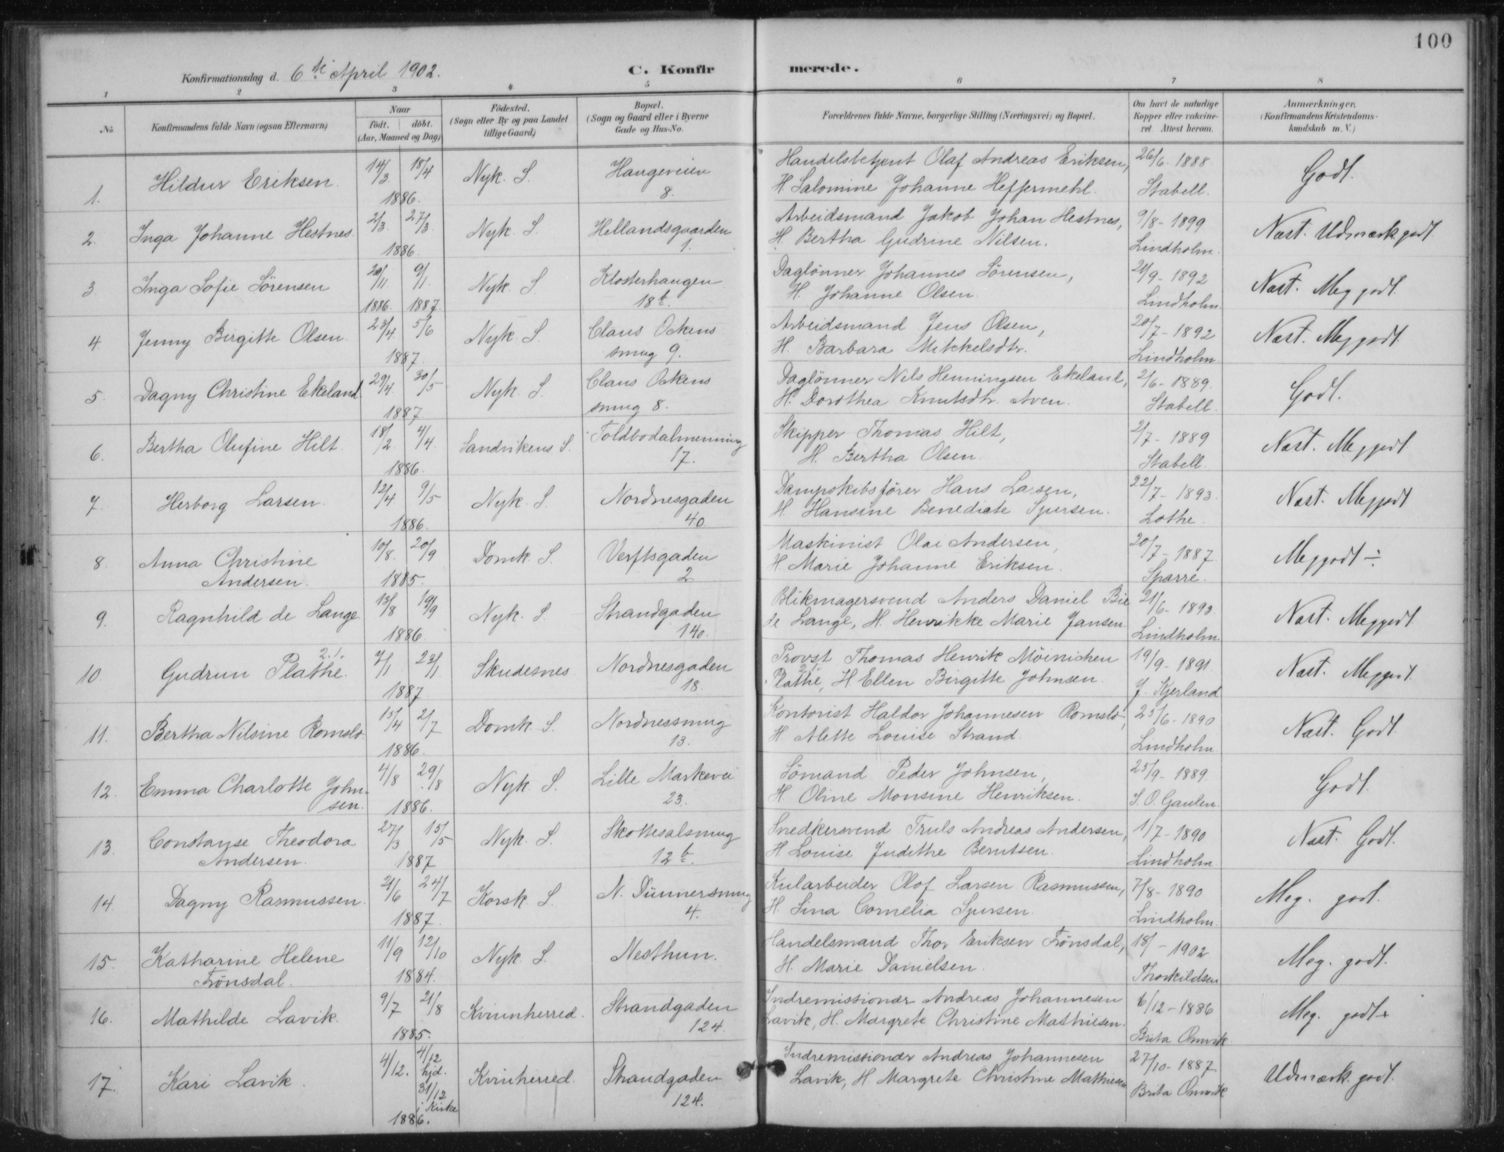 100
Konfirmationsdag d. 6te April 1902. C. Konfirmerede.
1 2 3 4 5 6 7 8
No. Konfirmandens fulde Navn (ogsaa Efternavn) Naar født. døbt. (Aar, Maaned og Dag) Fødested. (Sogn eller By og paa Landet tillige Gaard) Bopæl. (Sogn og Gaard eller i Byerne Gade og Hus-No. Forældrenes fulde Navne, borgerlige Stilling (Næringsvei) og Bopæl. Om havt de naturlige Kopper eller vakcineret. Attest herom. Anmærkninger. (Konfirmandens Kristendomskundskab m. V.)
1. Hildur Eriksen 14/3 18/4 Nyk. S. Haugeveien Handelsbetjent Olaf Andreas Eriksen, 26/6 - 1888 Godt.
1886. 8. H. Salomine Johanne Heffermehl. Stabell.
2. Inga Johanne Hestnes 2/3 27/3 Nyk. S. Hellandsgaarden Arbeidsmand Jakob Johan Hestnes, 9/8 - 1899 Næst. Udmærk godt
1886 1. H. Bertha Gudrine Nilsen. Lindholm.
3 Inga Sofie Sørensen 20/11 9/1 Nyk. S. Klosterhaugen Daglønner Johannes Sørensen, 20/9 - 1892 Næst. Meg godt.
1886 1887 18b. H. Johanne Olsen. Lindholm
4. Jenny Birgitte Olsen 23/4 5/6 Nyk. S. Claus Ockens Arbeidsmand Jens Olsen, 20/7 - 1892 Næst. Meg godt
1887. smug 9. H. Barbara Mikkelsdtr. Lindholm
5. Dagny Christine Ekeland 29/4 30/5 Nyk. S. Claus Ockens Daglønner Nils Henningsen Ekeland, 2/6 - 1889. Godt.
1887 smug 8. H. Dorothea Knutsdtr. Aven. Stabell.
6. Bertha Olufine Hilt 18/2 4/4 Sandvikens S. Toldbodalmenning Skipper Thomas Hilt, 2/7 - 1889 Næst. Meg godt
1886. 17. H. Bertha Olsen. Stabell.
7. Herborg Larsen. 12/4 9/5 Nyk. S. Nordnesgaden Dampskibsfører Hans Larsen, 22/7 - 1893. Næst. Meg godt
1886. 40 H. Hansine Benedicte Sjursen. Lothe.
8. Anna Christine 10/8 20/9 Domk. S. Verftsgaden Maskinist Olai Andersen, 20/7 - 1887 Meg godt ÷
Andersen. 1885. 2 H. Marie Johanne Eriksen. Sparre.
9. Ragnhild de Lange 13/8 19/9 Nyk. S. Strandgaden Blikmagersvend Anders Daniel Bie 21/6 - 1893. Næst. Meg godt
1886 140. de Lange, H. Henrikke Marie Jansen Lindholm.
10 Gudrun Plathe. 7/1 23/1 Skudesnes Nordnesgaden Provst Thomas Henrik Møinichen 19/9 - 1891 Næst. Meg godt
1887 18. Plathe, H. Ellen Birgitte Johnsen. J. Kjerland
11. Bertha Nilsine Romslo 15/4 2/7 Domk. S. Nordnessmug Kontorist Haldor Johannesen Romslo, 23/6 - 1890 Næst. Godt.
1886. 13. H. Alette Louise Strand. Lindholm
12. Emma Charlotte John- 4/8 29/8 Nyk. S. Lille Markevei Sømand Peder Johnsen, 25/9 - 1889 Godt.
sen. 1886. 23. H. Oline Monsine Henriksen. S. O. Gaulen.
13. Constanse Theodora 27/3 15/5 Nyk. S. Skottesalsmug Snedkersvend Truls Andreas Andersen, 1/7 - 1890 Næst. Godt.
Andersen. 1887 12b. H. Louise Judithe Berntsen. Lindholm
14. Dagny Rasmussen. 21/6 24/7 Korsk. S. N. Dünnersmug Kularbeider Olof Larsen Rasmussen, 7/8 - 1890 Meg. godt.
1887. 4. H. Lina Cornelia Sjursen. Lindholm.
15. Katharine Helene 11/9 12/10 Nyk. S. Nesttun. Handelsmand Thor Eriksen Trønsdal, 18/ - 1902 Meg. godt.
Trønsdal. 1884. H. Marie Danielsen. Thorkildsen
16. Mathilde Lavik. 9/7 21/8 Kvinnherred. Strandgaden Indremissionær Andreas Johannesen 6/12 - 1886 Meg. godt +
1885. 124 Lavik, H. Margrete Christine Mathiesen. Brita Omvik
17. Kari Lavik. 4/12. 4/12 hjd. Kvinnherred. Strandgaden Indremissionær Andreas Johannesen 27/10 - 1887 Udmærk. godt.
31/12 i Kirke 1886. 124. Lavik, H. Margrete Christine Mathiesen Brita Omvik